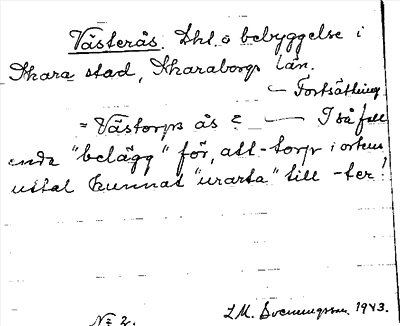 Västerås. Dhl o bebyggelse i
Skara stad, Skaraborgs län.
– Fortsättning
= Västorps ås ? — I så fall
enda "belägg" för, att -torp i ortens
uttal kunnat "urarta" till -ter!
No 2. L.M. Svenungsson. 1943.